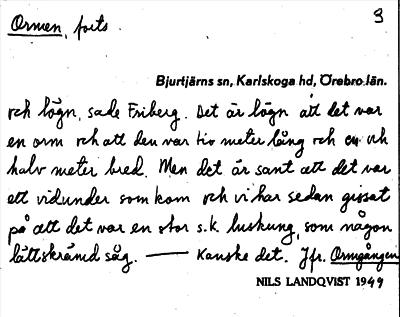 Ormen, forts. 3
Bjurtjärns sn, Karlskoga hd, Örebro län.
och lögn, sade Friberg. Det är lögn att det var
en orm och att den var tio meter lång och en och
halv meter bred. Men det är sant att det var
ett vidunder som kom och vi har sedan gissat
på att det var en stor s.k. luskung, som någon
lättskrämd såg. — Kanske det. Jfr. Ormgången
NILS LANDQVIST 1949